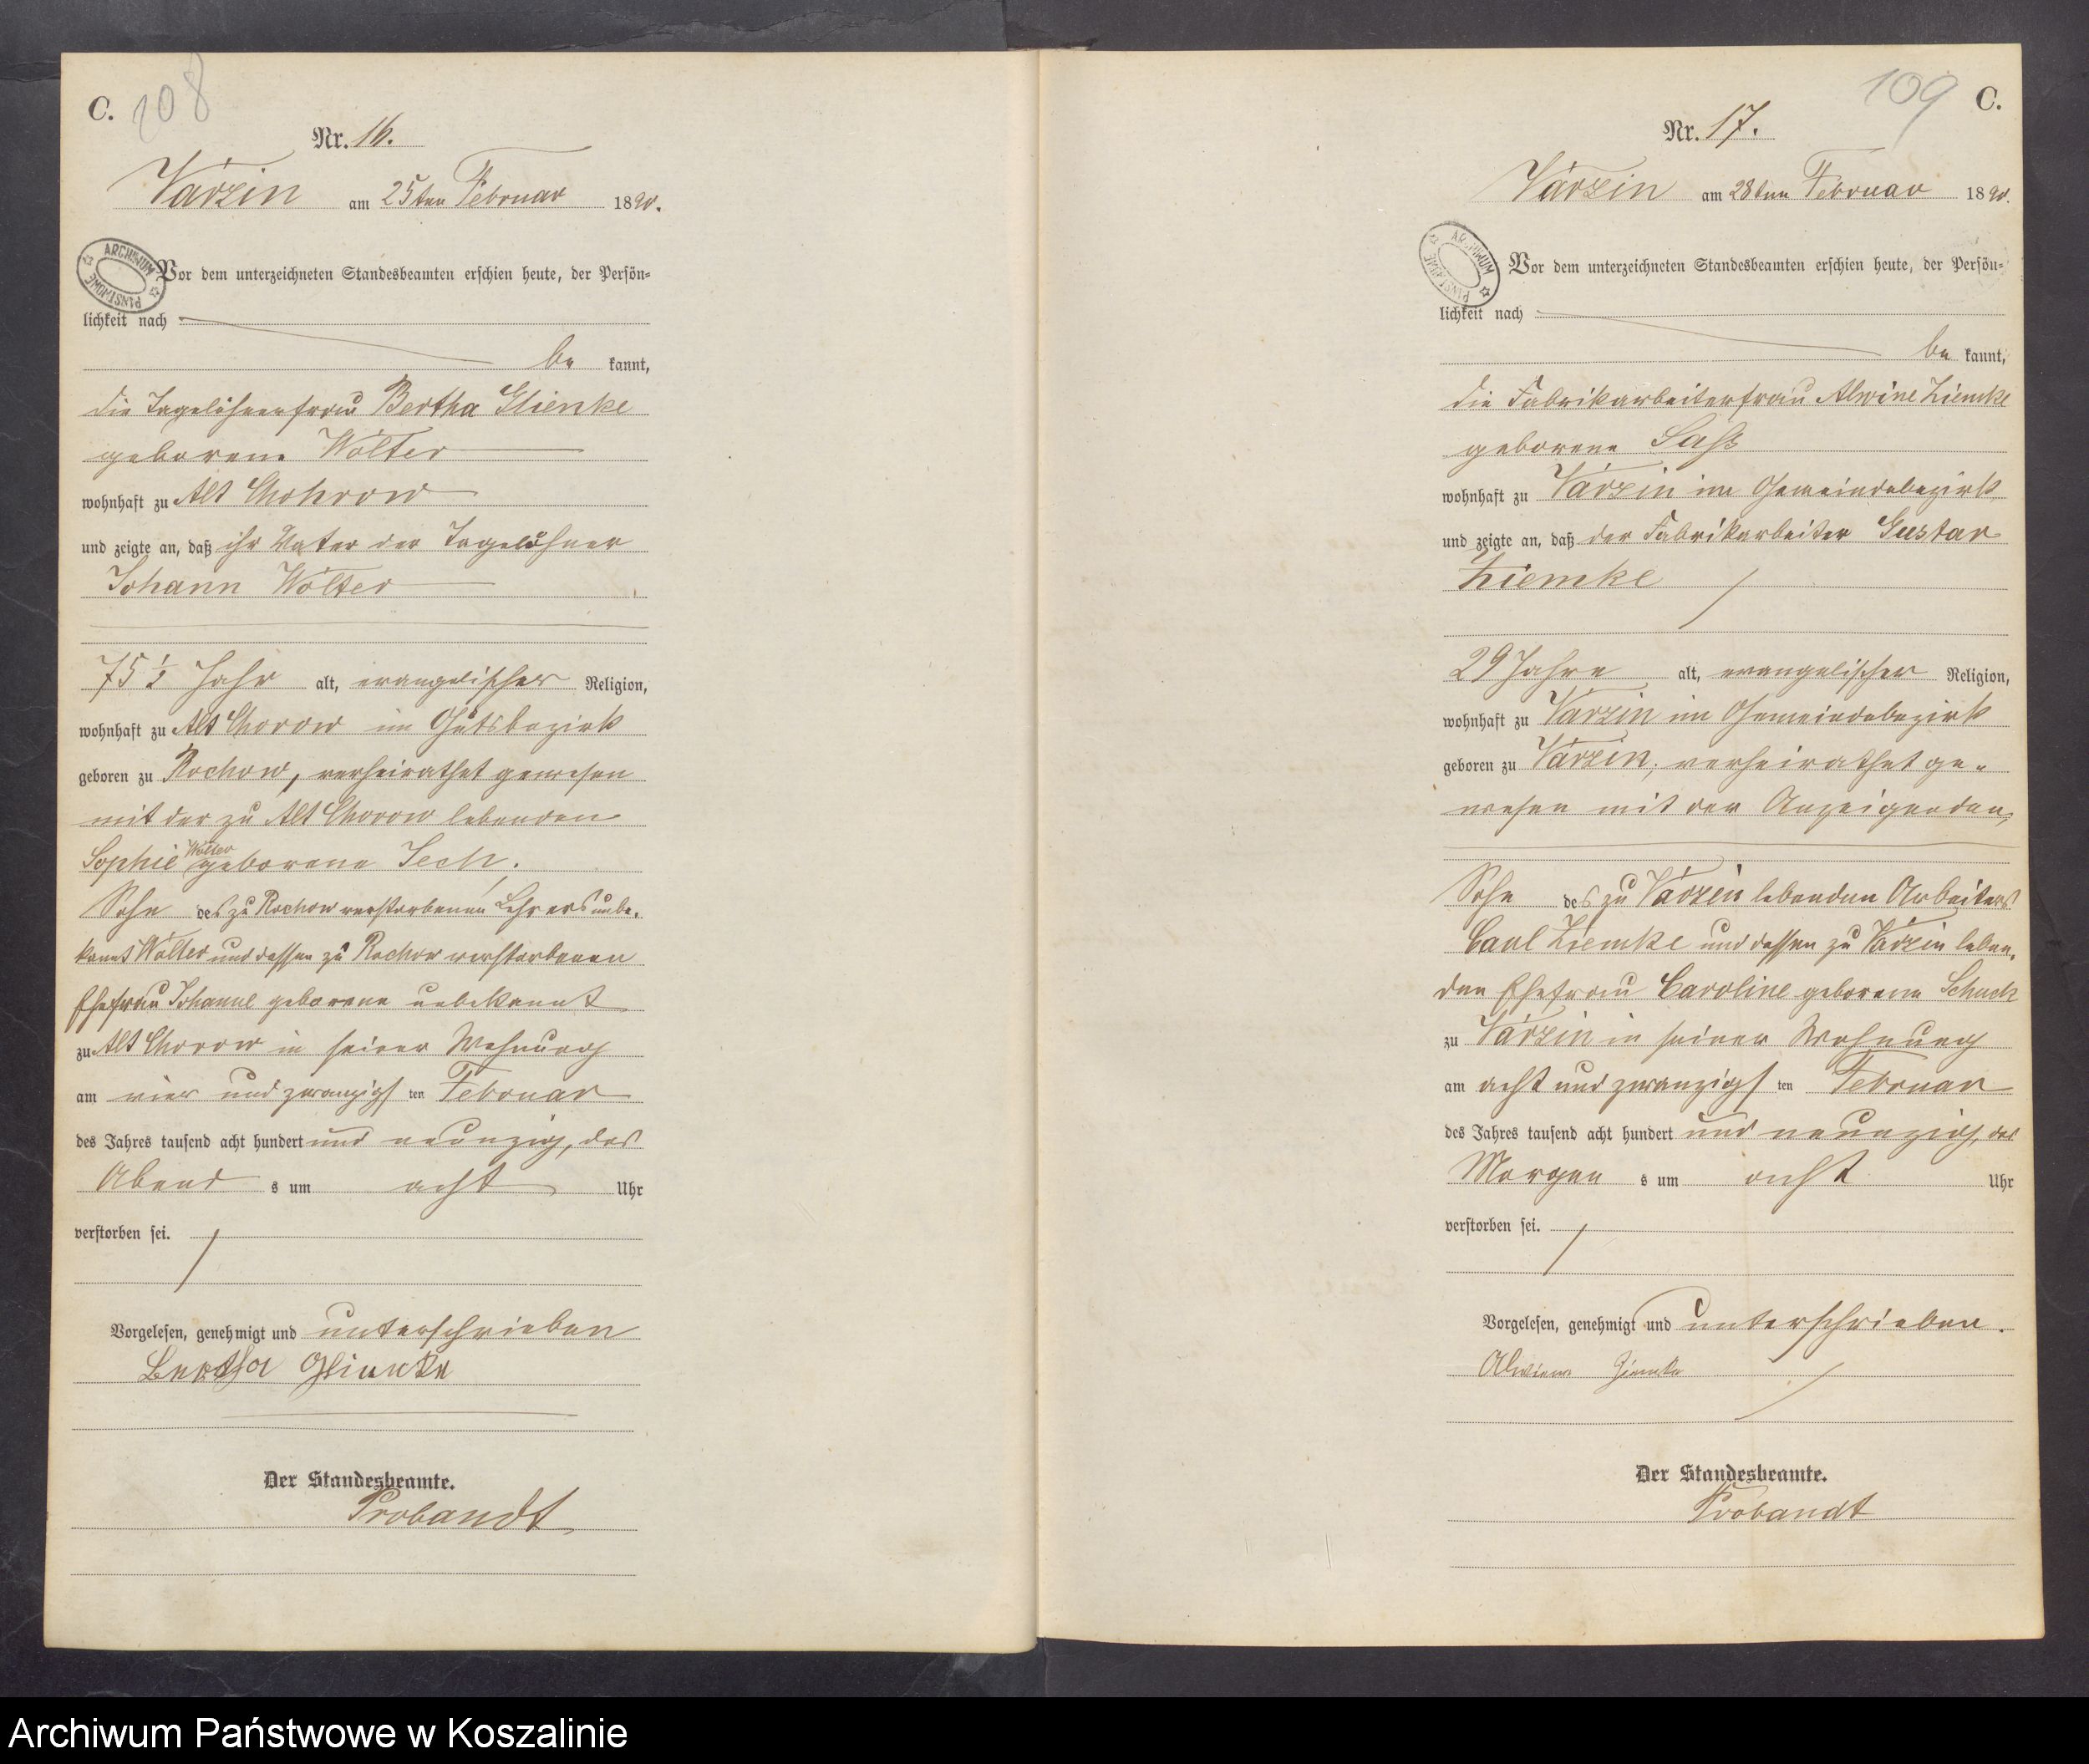 C. 108
Nr. 16.
Varzin am 25ten Februar 1890.
Vor dem unterzeichneten Standesbeamten erschien heute, der Persön=
lichkeit nach
be kannt,
die Tagelöhnerfrau Bertha Glienke
geborene Wolter
wohnhaft zu Alt Chorow
und zeigte an, daß ihr Vater der Tagelöhner
Johann Wolter
75 1/2 Jahr alt, evangelischer Religion,
wohnhaft zu Alt Chorow im Gutsbezirk
geboren zu Rochow, verheirathet gewesen
mit der zu Alt Chorow lebenden
Sophie Wolter geborene Tech.
Sohn des zu Rochow verstorbenen Lehrers unbe-
kannt Wolter und dessen zu Rochow verstorbenen
Ehefrau Johanne geborene unbekannt
zu Alt Chorow in seiner Wohnung
am vier und zwanzigs ten Februar
des Jahres tausend acht hundert und neunzig, des
Abend s um acht Uhr
verstorben sei.
Vorgelesen, genehmigt und unterschrieben
Bertha Glienke
Der Standesbeamte.
Probandt
109 C.
Nr. 17.
Varzin am 28ten Februar 1890.
Vor dem unterzeichneten Standesbeamten erschien heute, der Persön=
lichkeit nach
be kannt,
die Fabrikarbeiterfrau Alwine Ziemke
geborene Saß
wohnhaft zu Varzin im Gemeindebezirk
und zeigte an, daß der Fabrikarbeiter Gustav
Ziemke
29 Jahre alt, evangelischer Religion,
wohnhaft zu Varzin im Gemeindebezirk
geboren zu Varzin, verheirathet ge-
wesen mit der Anzeigenden,
Sohn des zu Varzin lebenden Arbeiters
Carl Ziemke und dessen zu Varzin leben-
den Ehefrau Caroline geborene Schuch
zu Varzin in seiner Wohnung
am acht und zwanzigs ten Februar
des Jahres tausend acht hundert und neunzig, des
Morgen s um acht Uhr
verstorben sei.
Vorgelesen, genehmigt und unterschrieben.
Alwiene Ziemke
Der Standesbeamte.
Probandt
Archiwum Państwowe w Koszalinie